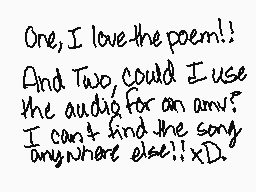 One, I love the poem!!
And Two, could I use
the audio for an amv?
I can't find the song
anywhere else!! xD.